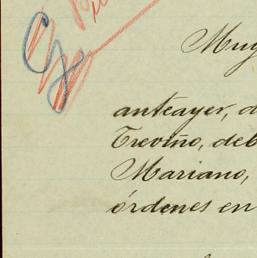 Muy
anteayer, d
Treviño, deb
Mariano,
órdenes en